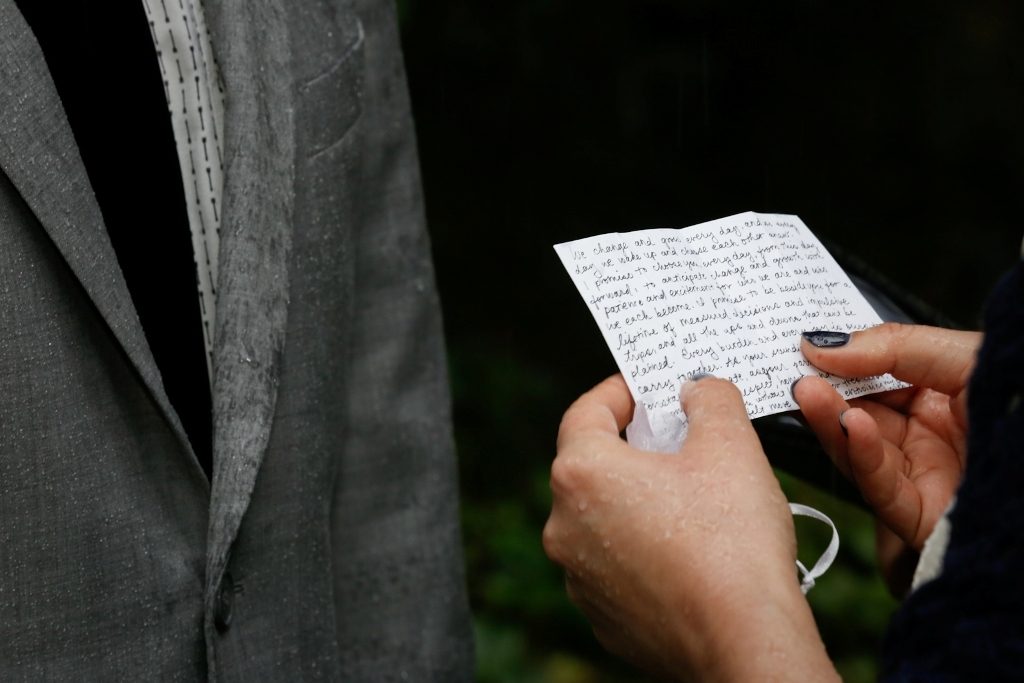 We change and grow every day, and as every
day we wake up and choose each other anew.
I promise to choose you every day, from this day
forward, to anticipate change and growth with
patience and excitement for who we are and who
we each become. I promise to be beside you for a
lifetime of measured decisions and impulsive
trips and all the ups and downs that can't be
planned. Every burden and every is our
carry together. As your
respect,
without